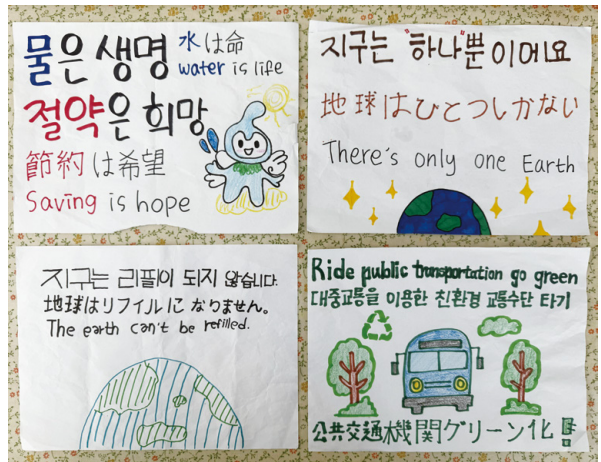 물은 생명 水は命
water is life
절약은 희망
節約は希望
Saving is hope
지구는 "하나"뿐이에요
地球はひとつしかない
There's only one Earth
지구는 리필이 되지 않습니다.
地球はリフィルになりません。
The earth can't be refilled.
Ride public transportation go green
대중교통을 이용한 친환경 교통수단 타기
公共交通機関グリーン化!